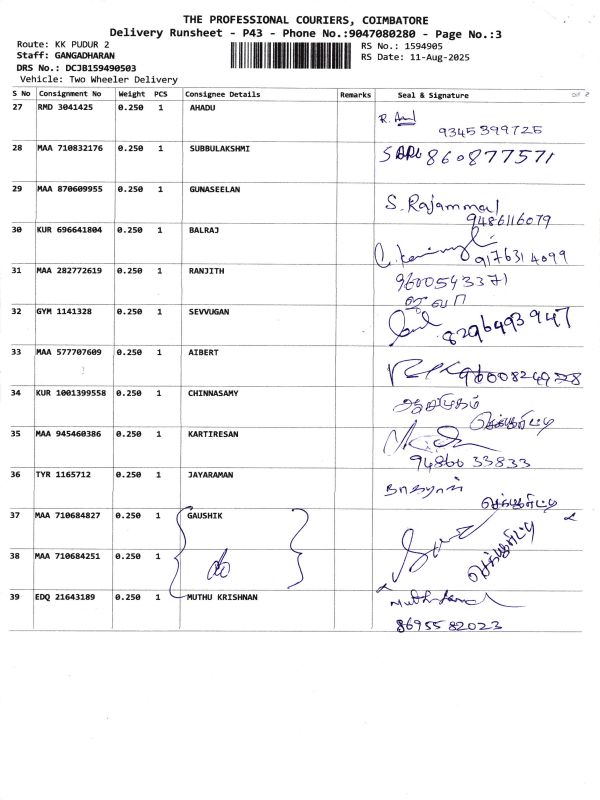 THE PROFESSIONAL COURIERS, COIMBATORE
Delivery Runsheet - P43 - Phone No.:9047080280 - Page No.:3
Route: KK PUDUR 2
Staff: GANGADHARAN
DRS No.: DCJB159490503
Vehicle: Two Wheeler Delivery
RS No.: 1594905
RS Date: 11-Aug-2025
S No Consignment No Weight PCS Consignee Details Remarks Seal & Signature
27 RMD 3041425 0.250 1 AHADU
9345399725
28 MAA 710832176 0.250 1 SUBBULAKSHMI
860877571
29 MAA 870609955 0.250 1 GUNASEELAN
S. Rajammal
9486116079
30 KUR 696641804 0.250 1 BALRAJ
9176314099
31 MAA 282772619 0.250 1 RANJITH
9600543371
32 GYM 1141328 0.250 1 SEVVUGAN
8296493947
33 MAA 577707609 0.250 1 AIBERT
34 KUR 1001399558 0.250 1 CHINNASAMY
ஆறுமுகம்
35 MAA 945460386 0.250 1 KARTIRESAN
94866 33833
36 TYR 1165712 0.250 1 JAYARAMAN
நாகராஜ்
37 MAA 710684827 0.250 1 GAUSHIK
38 MAA 710684251 0.250 1
39 EDQ 21643189 0.250 1 MUTHU KRISHNAN
8695582023